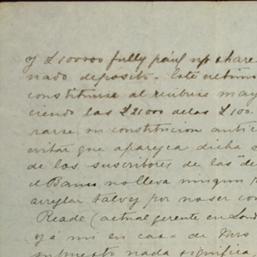 y £100000 fully paid up share
nado deposito. Este
constituirse al recibir may
ciendo las £21000 de las £100
rarse su constitucion antic
evitar que aparezca dicha
de los suscritores de las de
el Banco no lleva ningun
arreglar talvez por no ser con
Reade (actual gerente en Lond
y a mi en casa de Mrs
supuesto nada significa